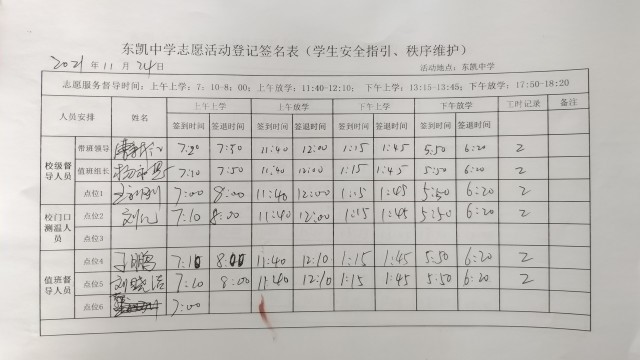 东凯中学志愿活动登记签名表（学生安全指引、秩序维护）
2021 年 11 月 24 日 活动地点：东凯中学
志愿服务督导时间：上午上学：7：10-8：00；上午放学：11:40-12:10； 下午上学：13:15-13:45；下午放学：17:50-18:20
人员安排 姓名 上午上学 上午放学 下午上学 下午放学 工时记录 备注
签到时间 签退时间 签到时间 签退时间 签到时间 签退时间 签到时间 签退时间
校级督导人员 带班领导 7:20 7:50 11:40 12:00 1:15 1:45 5:50 6:20 2
值班组长 7:10 7:50 11:40 12:00 1:15 1:45 5:50 6:20 2
点位1 7:00 8:00 11:40 12:00 1:15 1:45 5:50 6:20 2
校门口测温人员 点位2 7:10 8:00 11:40 12:00 1:15 1:45 5:50 6:20 2
点位3
值班督导人员 点位4 于鹏 7:10 8:00 11:40 12:10 1:15 1:45 5:50 6:20 2
点位5 刘晓洁 7:10 8:00 11:40 12:10 1:15 1:45 5:50 6:20 2
点位6 7:00